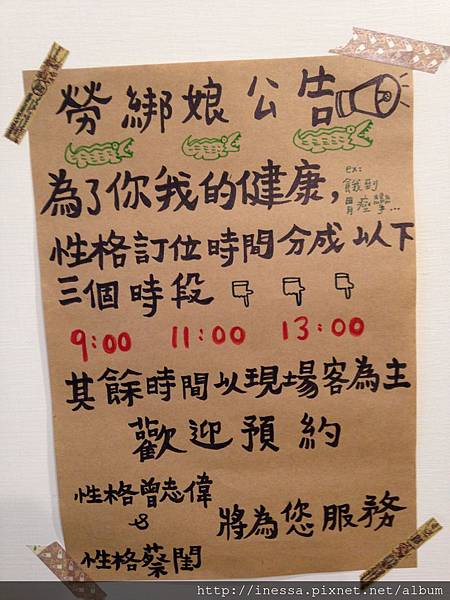 勞綁娘公告
為了你我的健康，
ex:
餓到
胃痙攣...
性格訂位時間分成以下
三個時段
9:00 11:00 13:00
其餘時間以現場客為主
歡迎預約
性格曾志偉
&
性格蔡閨
將為您服務
http://inessa.pixnet.net/album